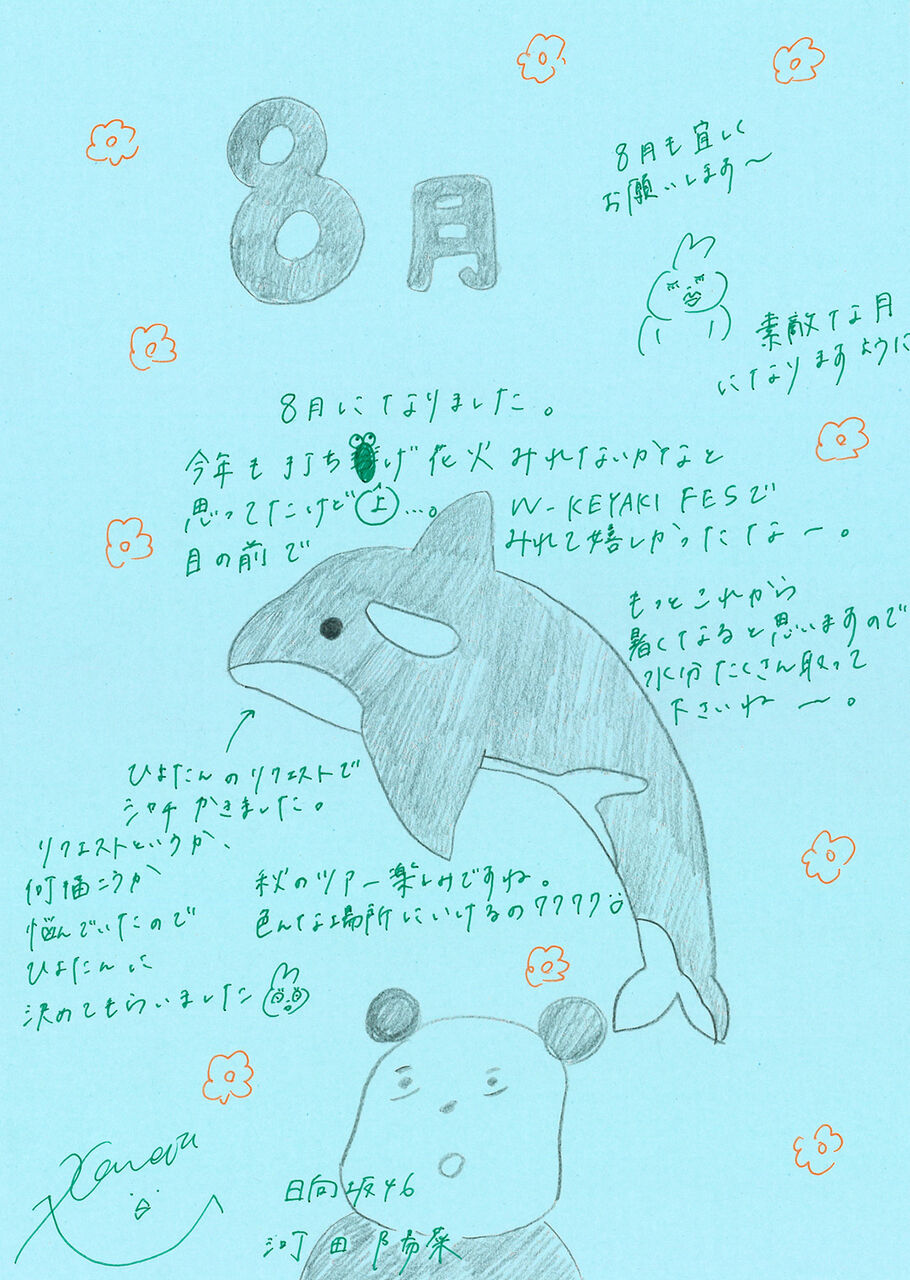 8月
8月も宜しく
お願いします〜
素敵な月
になりますように
8月になりました。
今年も打ち げ花火 みれないかなと
思ってたけど 上 …。 W-KEYAKI FESで
目の前で みれて嬉しかったなー。
もっとこれから
暑くなると思いますので
水分たくさん取って
下さいね 〜。
ひよたんのリクエストで
シャチかきました。
リクエストというか、
何描こうか
悩んでいたので
ひよたんに
決めてもらいました
秋のツアー楽しみですね。
色んな場所にいけるのワクワク
日向坂46
河田陽菜